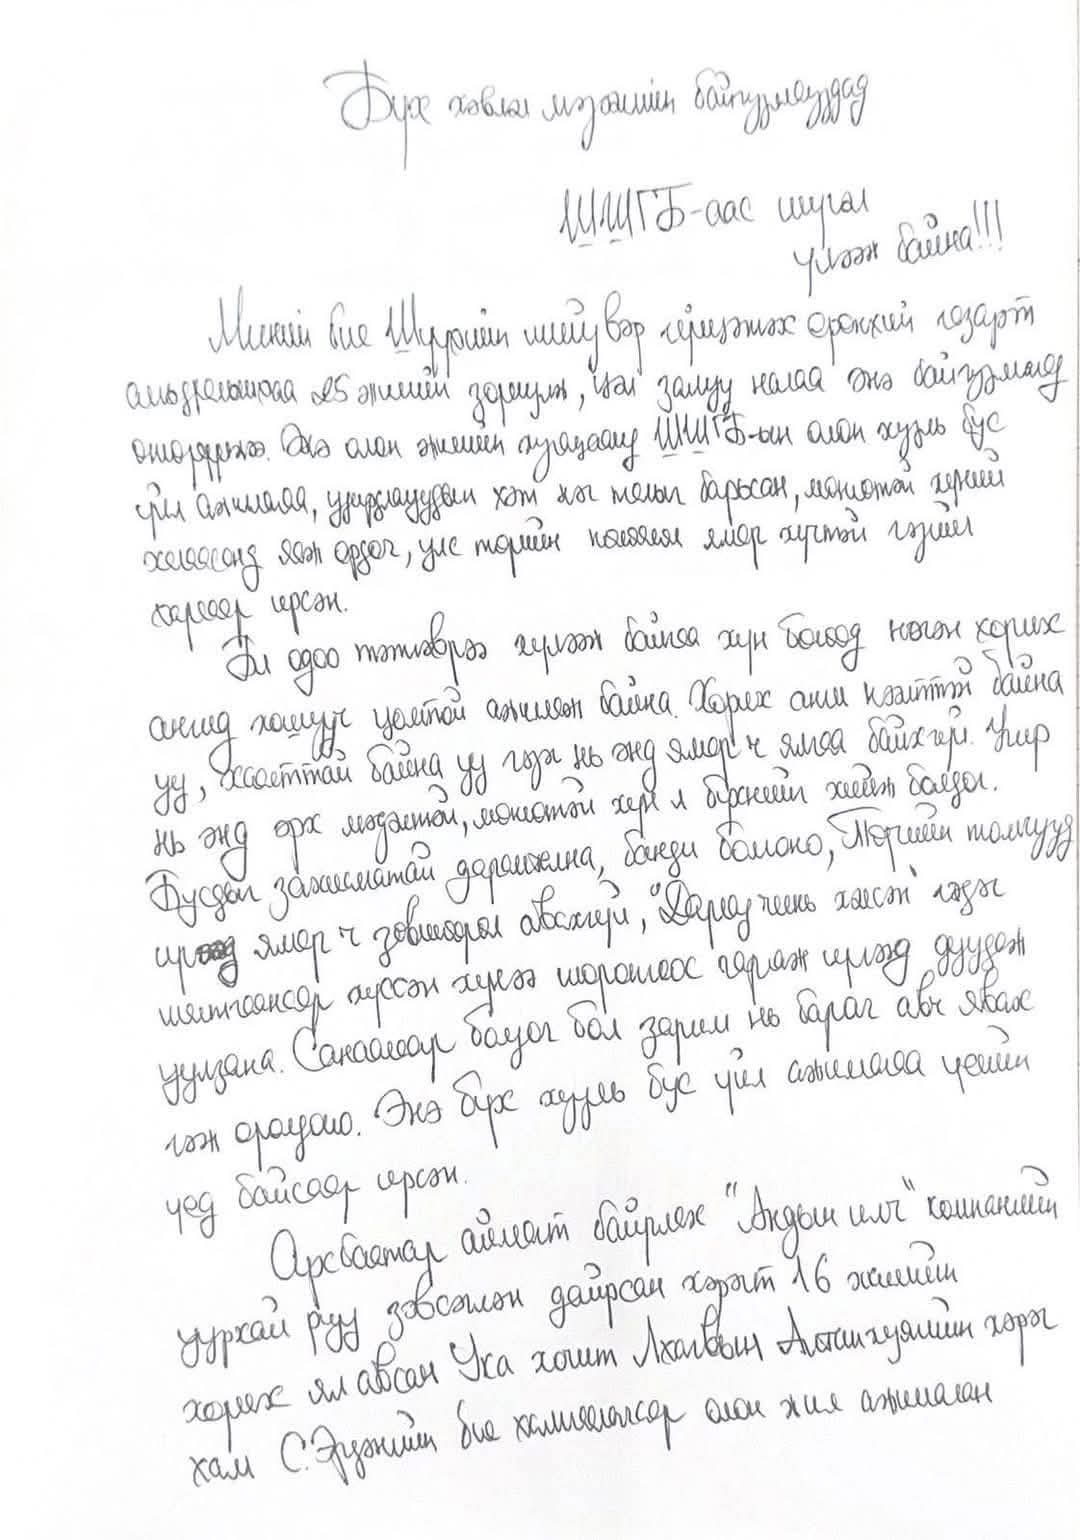 Бүх хэвлэл мэдээллийн байгууллагуудад
ШШГБ-аас шугал
үлээж байна!!!
Миний бие Шүүхийн шийдвэр гүйцэтгэх ерөнхий газарт
амьдралынхаа 25 жилийг зориулж, цэл залуу насаа энэ байгууллагад
өнгөрүүлжээ. Энэ олон жилийн хугацаанд ШШГБ-ын олон хууль бус
үйл ажиллагаа, удирдлагуудын хэт нэг талыг барьсан, мөнгөтэй хүний
хаяанд яаж ордог, улс төрийн нөлөөлөл ямар хүчтэй гэдгийг
харсаар ирсэн.
Би одоо тэтгэврээ хүлээж байгаа хүн бөгөөд нэгэн хорих
ангид хошууч цолтой ажиллаж байна. Хорих анги нээлттэй байна
уу, хаалттай байна уу гэдэг нь энд ямар ч ялгаа байхгүй. Учир
нь энд эрх мэдэлтэй, мөнгөтэй хүн л бүхнийг хийж болдог.
Бусдыг захиалгатай дарамтална, банди болгоно, Төрийн толгууд
ирээд ямар ч зөвшөөрөл авахгүй, "Дарга чинь хэлсэн" гэдэг
шалтгаанаар хүссэн хүнээ шоронгоос гаргаж ирээд дуудаж
уулзана. Санаагаар болдог бол зарим нь бараг авч явах
гэж оролдоно. Энэ бүх хууль бус үйл ажиллагаа үеийн
үед байсаар ирсэн.
Архбаатар аймагт байрлах "Андын илч" компанийн
уурхай руу зэвсэглэн дайрсан хэрэгт 16 жилийн
хорих ял авсан Ука хочит Лхагвын Алтанхуягийн хэрэг
хам С.Эрдэнийн бие хамгаалагчаар олон жил ажилласан